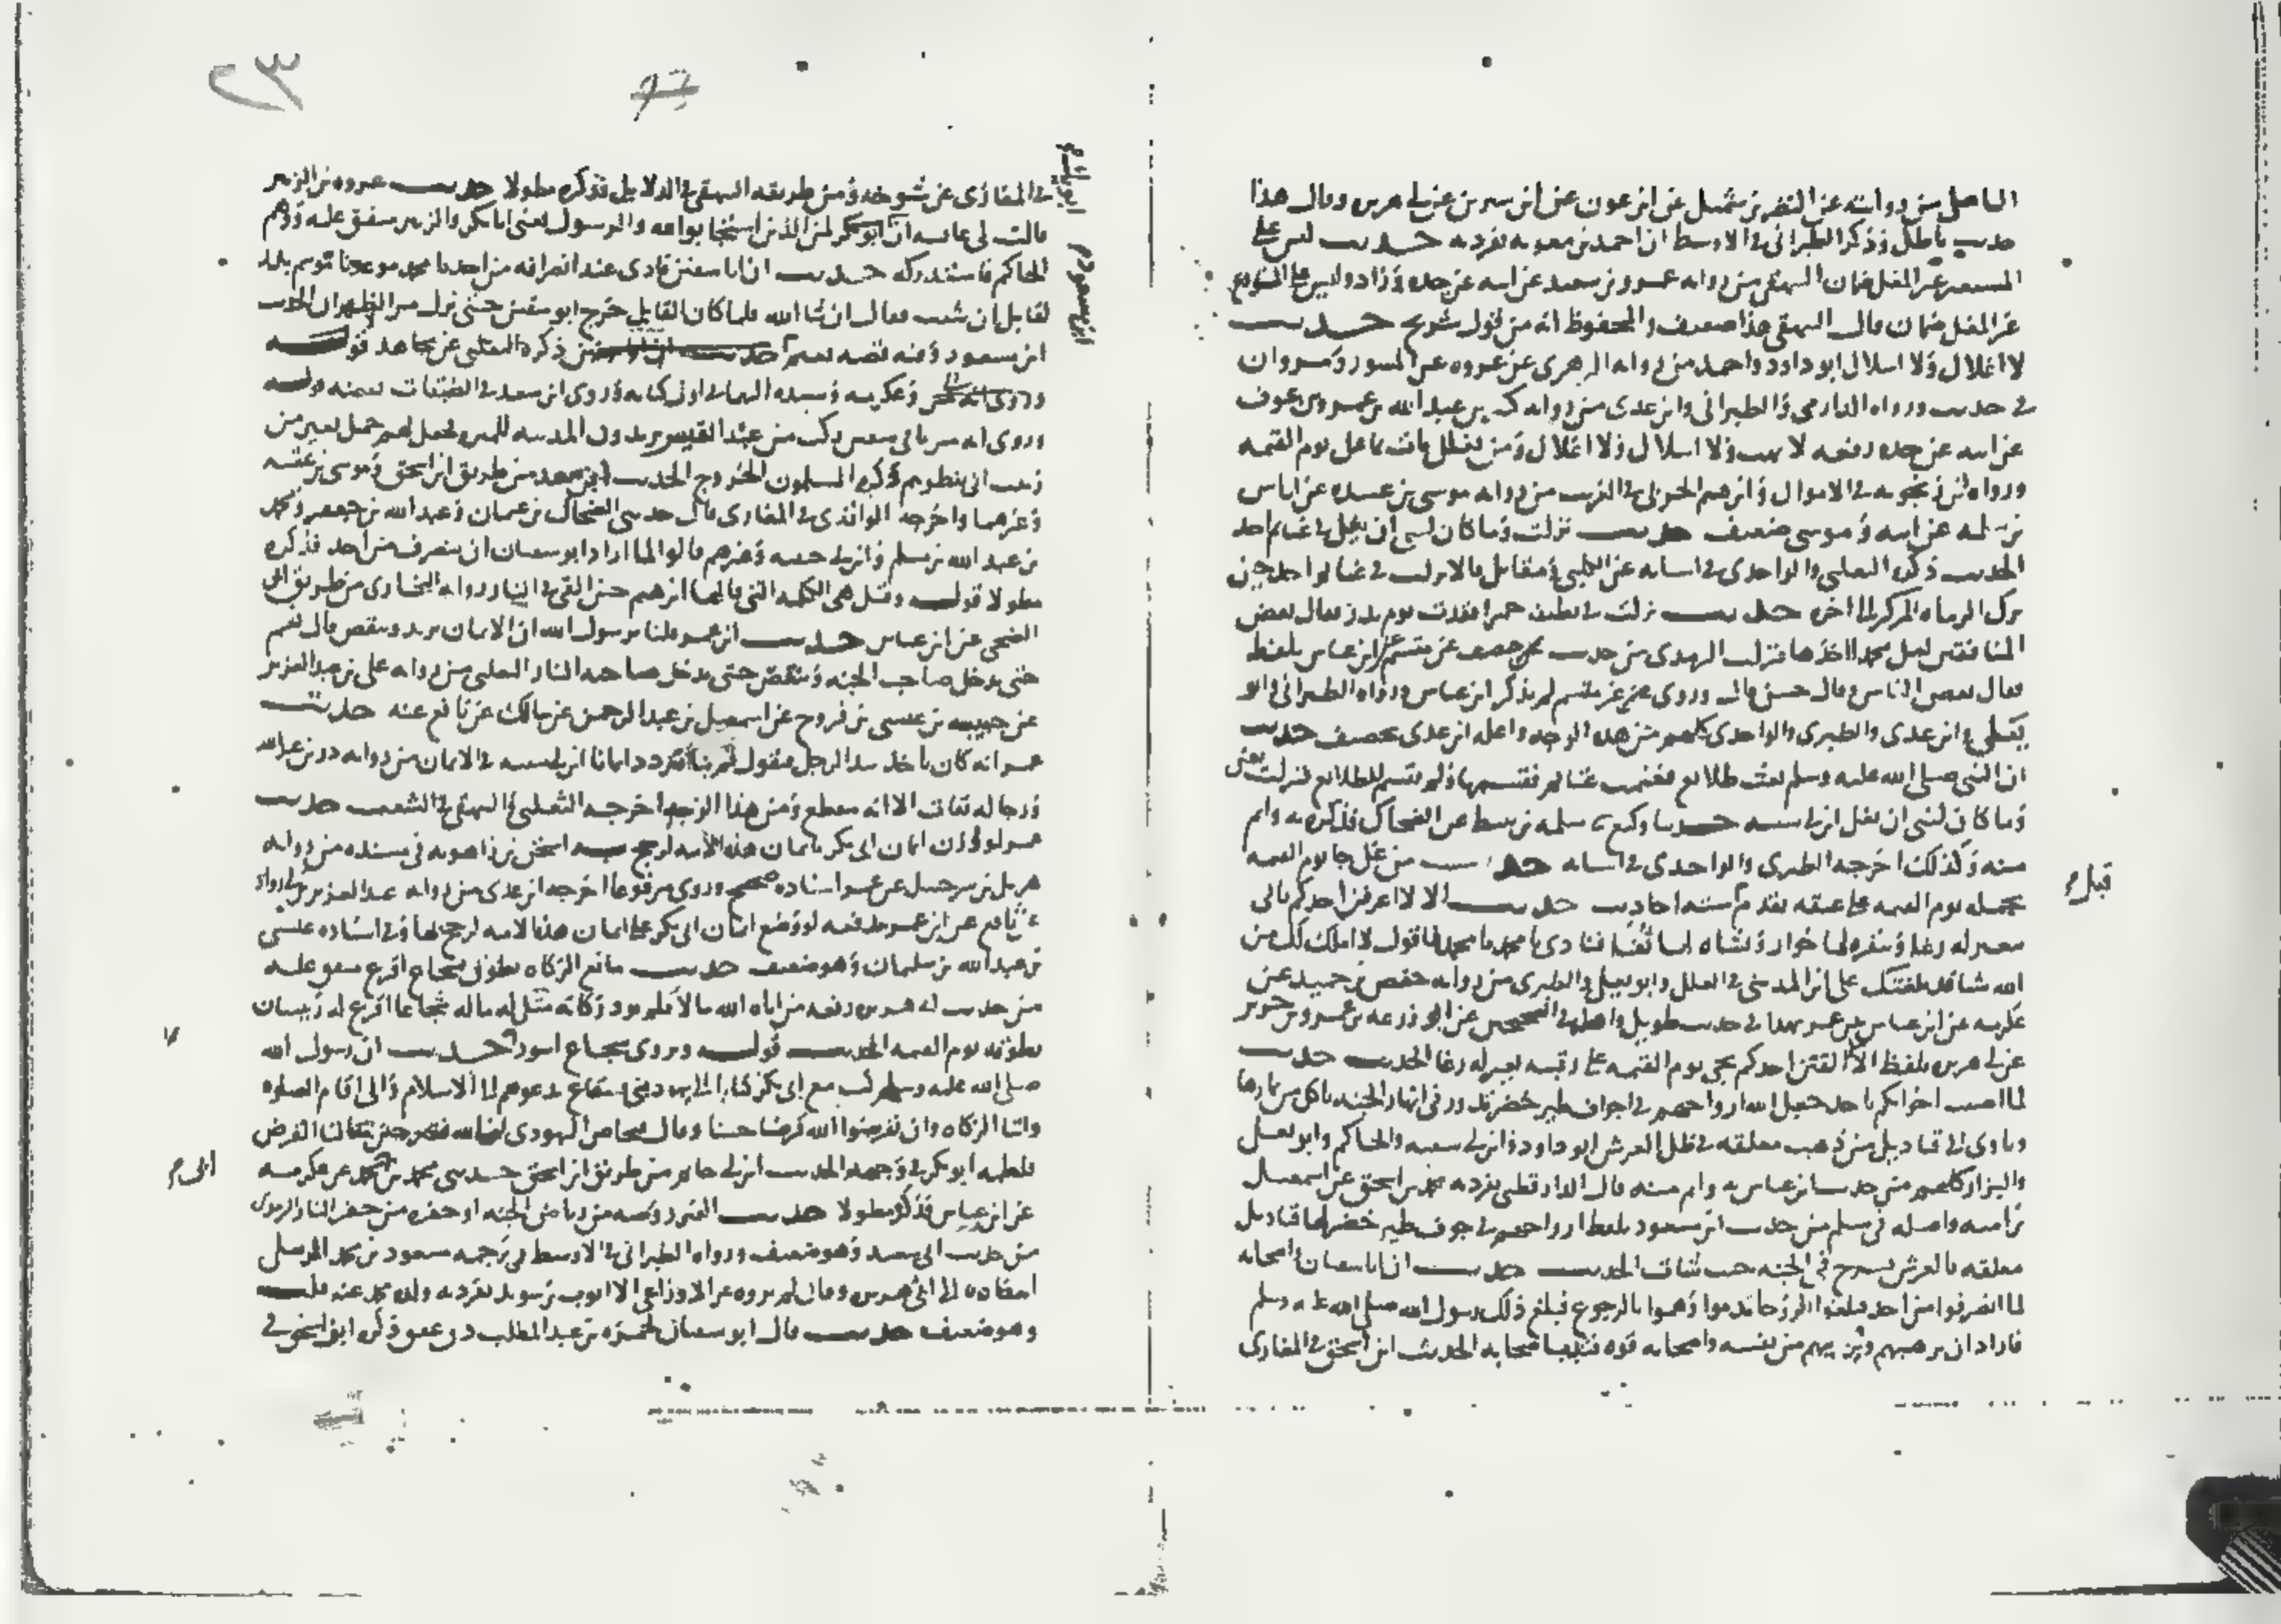 الباهلي من روايته عن النضر بن شميل عن ابن عون عن ابن سيرين عن ابي هريره وقال هذا
حديث باطل وذكر الطبراني في الاوسط ان احمد بن معويه تفرد به حديث ليس على
المستعير غير المغل ضمان البيهقي من روايه عمرو بن سعيد عن ابيه عن جده وزاد وليس على المستودع
غير المغل ضمان قال البيهقي هذا ضعيف والمحفوظ انه من قول شريح حديث
لا اغلال ولا اسلال ابو داود واحمد من روايه الزهري عن عروه عن المسور ومروان
في حديث ورواه الدارمي والطبراني وابن عدي من روايه كثير بن عبد الله بن عمرو بن عوف
عن ابيه عن جده رفعه لا نهب ولا اسلال ولا اغلال ومن يغلل يات بما غل يوم القيمه
ورواه ابن زنجويه في الاموال وابرهيم الحربي في الغريب من روايه موسى بن عبيده عن اياس
بن سلمه عن ابيه وموسى ضعيف حديث نزلت وما كان لنبي ان يغل في غنايم احد
الحديث ذكره الثعلبي والواحدي في اسبابه عن الكلبي ومقاتل قالا نزلت في غنايم احد حين
ترك الرماه المركز الى اخره حديث نزلت في قطيفه حمرا فقدت يوم بدر فقال بعض
المنافقين لعل محمدا اخذها فنزلت الترمذي من حديث خصيف عن مقسم عن ابن عباس بلفظ
فقال بعض الناس وقال حسن قال وروي عن مقسم لم يذكر ابن عباس ورواه الطبراني وابو
يعلى وابن عدي والطبري والواحدي كلهم من هذا الوجه واعله ابن عدي بخصيف حديث
ان النبي صلى الله عليه وسلم بعث طلايع فغنمت غنايم فقسمها ولم يقسم للطلايع فنزلت يعني
وما كان لنبي ان يغل ابن ابي شيبه حدثنا وكيع ثنا سلمه بن نبيط عن الضحاك فذكره به واتم
منه وكذلك اخرجه الطبري والواحدي في اسبابه حديث من غل جا يوم القيمه
يحمله يوم القيمه على عنقه تقدم في سته احاديث حديث الا لا اعرفن احدكم ياتي
ببعير له رغا وببقره لها خوار وبشاه لها ثغا فينادي يا محمد يا محمد فاقول لا املك لك من
الله شيا قد بلغتك علي ابن المديني في العلل وابو يعلى والطبري من روايه حفص بن حميد عن
عكرمه عن ابن عباس عن عمر بهذا في حديث طويل واصله في الصحيحين عن ابي زرعه بن عمرو بن جرير
عن ابي هريره بلفظ لا الفين احدكم يجي يوم القيمه على رقبته بعير له رغا الحديث حديث
لما اصيب اخوانكم باحد جعل الله ارواحهم في اجواف طير خضر ترد في انهار الجنه تاكل من ثمارها
وتاوي الى قناديل من ذهب معلقه في ظل العرش ابو داود وابن ابي شيبه والحاكم وابو يعلى
والبزار كلهم من حديث ابن عباس به واتم منه قال الدارقطني تفرد به محمد بن اسحق عن اسمعيل
بن اميه واصله في مسلم من حديث ابن مسعود بلفظ ارواحهم في جوف طير خضر لها قناديل
معلقه بالعرش تسرح في الجنه حيث شات الحديث حديث ان ابا سفيان واصحابه
لما انصرفوا من احد فبلغوا الروحا ندموا وهموا بالرجوع فبلغ ذلك رسول الله صلى الله عليه وسلم
فاراد ان يرهبهم ويريهم من نفسه واصحابه قوه فندب اصحابه الحديث ابن اسحق في المغازي
قبل م
٢٣
في المغازي عن شيوخه ومن طريقه البيهقي في الدلايل فذكره مطولا حديث عروه بن الزبير
قالت لي عايشه ان ابويك لمن الذين استجابوا لله والرسول يعني ابا بكر والزبير متفق عليه ووهم
الحاكم فاستدركه حديث ان ابا سفين نادى عند انصرافه من احد يا محمد موعدنا موسم بدر
لقابل ان شيت فقال ان شا الله فلما كان القابل خرج ابو سفين حتى نزل مر الظهران الحديث
ابن سعود وفيه قصه نعيم ذكره الثعلبي عن مجاهد قوله
وعكرمه وسنده اليهما في اول كتابه وروى ابن سعد في الطبقات بعضه قوله
وروي انه مر بابي سفين ركب من عبد القيس يريدون المدينه للميره فجعل لهم حمل بعير من
زبيب ان ثبطوهم وكره المسلمون الخروج الحديث من طريق ابن اسحق وموسى بن عقبه
وغيرهما واخرجه الواقدي في المغازي قال حدثني الضحاك بن عثمان وعبد الله بن جعفر ومحمد
بن عبد الله بن مسلم وابن ابي حبيبه وغيرهم قالوا لما اراد ابو سفيان ان ينصرف من احد فذكره
مطولا قوله وقيل هي الكلمه التي قالها ابرهيم حين القي في النار رواه البخاري من طريق ابي
الضحى عن ابن عباس حديث ابن عمر قلنا يا رسول الله ان الايمان يزيد وينقص قال نعم
حتى يدخل صاحبه الجنه وينقص حتى يدخل صاحبه النار الثعلبي من روايه علي بن عبد العزيز
عن حبيب بن عيسى بن فروخ عن اسمعيل بن عبد الرحمن عن مالك عن نافع عنه حديث
عمر انه كان ياخذ بيد الرجل فيقول قم بنا نزدد ايمانا ابن ابي شيبه في الايمان من روايه ذر بن عبد الله
ورجاله ثقات الا انه منقطع ومن هذا الوجه اخرجه الثعلبي والبيهقي في الشعب حديث
عمر لو وزن ايمان ابي بكر بايمان هذه الامه لرجح به اسحق بن راهويه في مسنده من روايه
هزيل بن شرحبيل عن عمر اسناده صحيح وروي مرفوعا اخرجه ابن عدي من روايه عبد العزيز بن ابي رواد
عن نافع عن ابن عمر رفعه لو وضع ايمان ابي بكر على ايمان هذه الامه لرجح بها وفي اسناده عيسى
بن عبد الله بن سليمان وهو ضعيف حديث مانع الزكاه يطوق بشجاع اقرع متفق عليه
من حديث ابي هريره رفعه من اتاه الله مالا فلم يود زكاته مثل له ماله شجاعا اقرع له زبيبتان
يطوقه يوم القيمه الحديث قوله ويروى بشجاع اسود حديث ان رسول الله
صلى الله عليه وسلم كتب مع ابي بكر كتابا الى يهود بني قينقاع يدعوهم الى الاسلام والى اقام الصلوه
وايتا الزكاه وان يقرضوا الله قرضا حسنا فقال فنحاص اليهودي ان الله فقير حتى سالنا القرض
فلطمه ابو بكر في وجهه الحديث ابن ابي حاتم من طريق ابن اسحق حدثني محمد بن ابي محمد عن عكرمه
عن ابن عباس فذكره مطولا حديث القبر روضه من رياض الجنه او حفره من حفر النار الترمذي
من حديث ابي سعيد وهو ضعيف ورواه الطبراني في الاوسط في ترجمه مسعود بن محمد الرملي
اسناده الى ابي هريره وقال لم يروه عن الاوزاعي الا ايوب بن سويد تفرد به ولده محمد عنه قلت
وهو ضعيف حديث قال ابو سفيان لحمزه بن عبد المطلب ذق عقق ذكره ابن اسحق في
ابي م